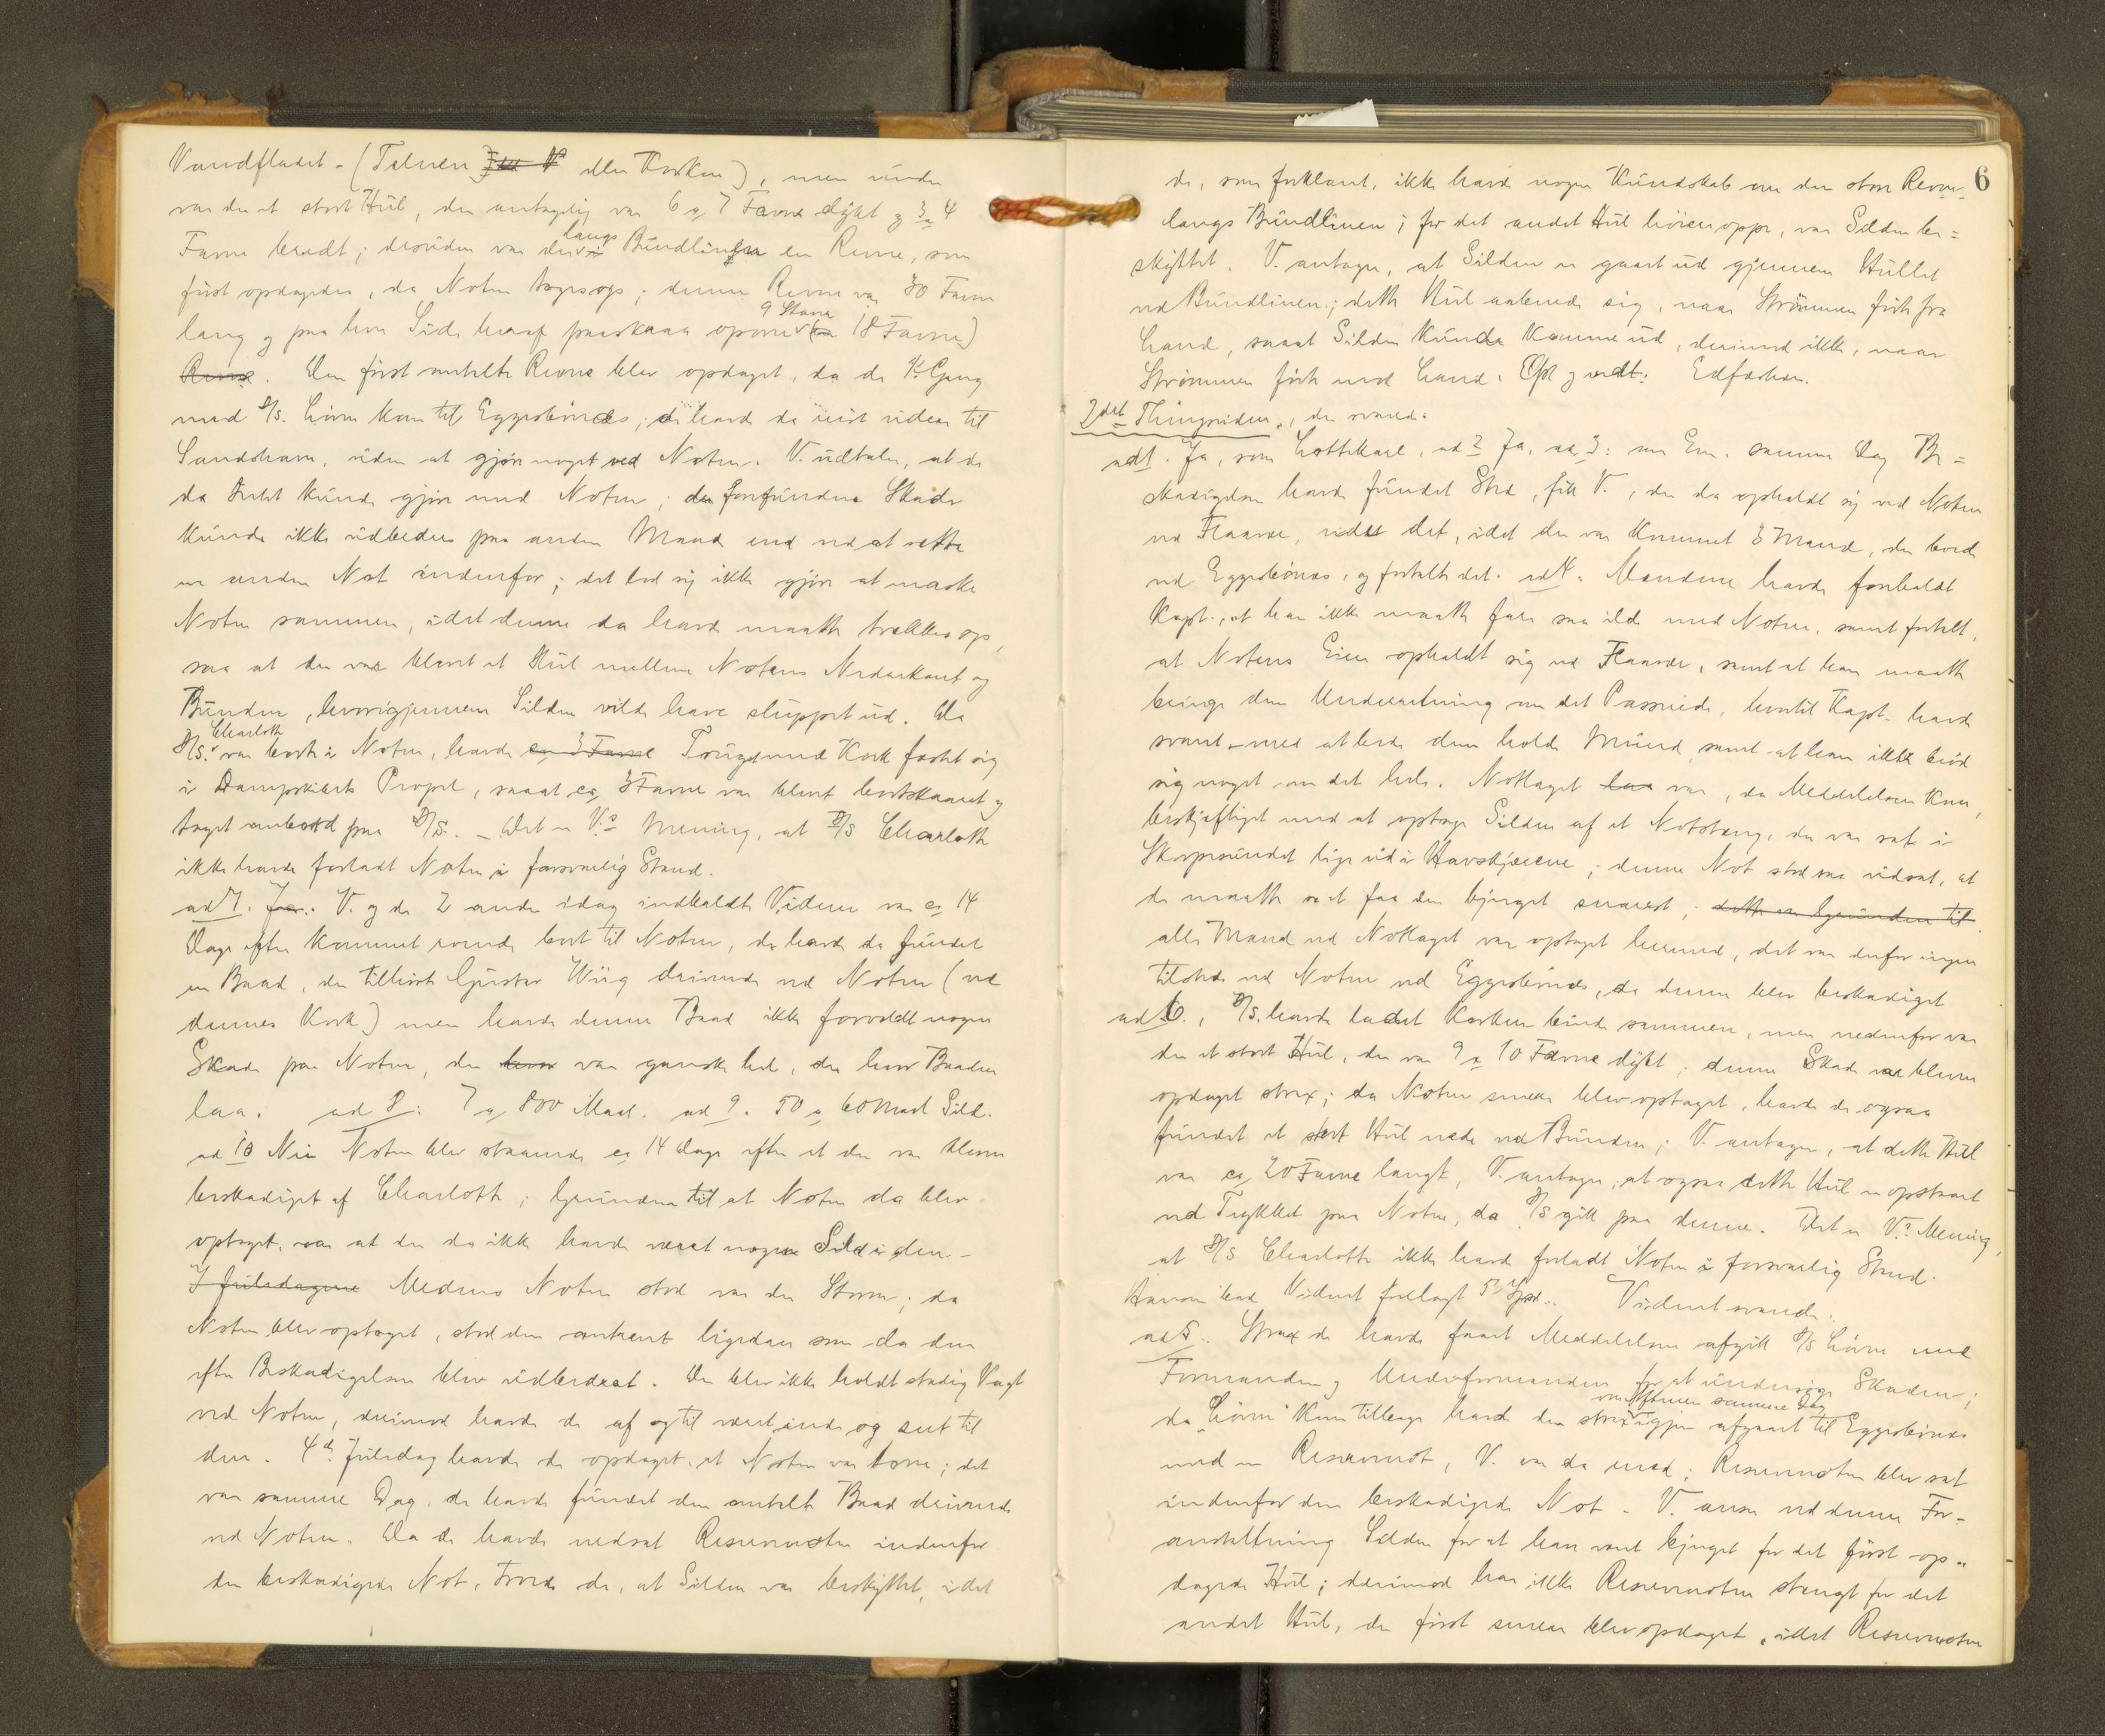 Vandfladet - (Telnen eller Korken), men under
var der et stort Hul, der antagelig var 6 a 7 Favne dybt og 3 a 4
Favne bredt; desuden var der langs Bundlinen en Revne, som
først opdagedes, da Noten toges op; denne Revne var 30 Favne
lang og paa hver Side heraf 9 Stave (18 Favne)
Revne. Den først omtalte Revne blev opdaget, da de 1. Gang
med D/S. Løvn kom til Eggesbønes; de havde da reist videre til
Sandshavn, uden at gjøre noget ved Noten. V. udtaler, at de
da Intet kunde gjøre med Noten; den forefundne Skade
kunde ikke udbedres paa anden Maade end ved at sætte
en anden Not indenfor; det lod sig ikke gjøre at maske
Noten sammen, idet denne da havde maatte trækkes op,
saa at der var blevet et Hul mellem Notens Nedrekant og
Bunden, hvorigjennem Silden vilde have sluppet ud. Da
D/S. Charlotte var borte i Noten, havde ca 3 Favne Toug med Kork fæstet sig
i Dampskibets Propel, saaat ca 3 Favne var blevet bortskaaret og
taget ombord paa D/S. - Det er V.s Mening, at D/S Charlotte
ikke havde forladt Noten i forsvarlig Stand.
ad 7. Ja. V. og de 2 andre idag indkaldte Vidner var ca 14
Dage efter kommet roende bort til Noten, de havde da fundet
en Baad, der tilhørte Gustav Wiig drivende ved Noten (ved
dennes Kork) men havde denne Baad ikke forvoldt nogen
Skade paa Noten, der hvor var ganske hel, der hvor Baaden
laa. ad 8: 7 a 800 Maal. ad 9. 50 a 60 Maal Sild.
ad 10 Nei Noten blev staaende ca 14 Dage efter at den var bleven
beskadiget af Charlotte; Grunden til at Noten da blev
optaget, var at der da ikke havde været nogen Sild i den.-
I Juledagene Medens Noten stod var der Storm; da
Noten blev optaget, stod den omtrent ligedan som da den
efter Beskadigelsen blev udbedret. Der blev ikke holdt stadig Vagt
ved Noten, derimod havde de af og til været inde og seet til
den. 4de Juledag havde de opdaget, at Noten var tom; det
var samme Dag, de havde fundet den omtalte Baad drivende
ved Noten. Da de havde nedsat Reservenoten indenfor
den beskadigede Not, troede de, at Silden var beskyttet, idet
6
de, som forklaret, ikke havde nogen Kundskab om den store Revne
langs Bundlinen; for det andet Hul høiere oppe, var Silden be=
skyttet. V. antager, at Silden er gaaet ud gjennem Hullet
ved Bundlinen; dette Hul aabnede sig, naar Strømmen førte fra
Land, saaat Silden kunde komme ud, derimod ikke, naar
Strømmen førte mod Land. Opl. og vedt. Edfæstedes.
2det Thingvidne, der svared:
ad 1. Ja, som Lottekarl, ad 2 Ja, ad 3: om Em. samme Dag Be=
skadigelsen havde fundet Sted, fik V., der da opholdt sig ved Noten
ved Flaavær, vide det, idet der var kommet 3 Mænd, der bode
ved Eggesbønes, og fortalte det. ad 4. Mændene havde foreholdt
Kapt., at han ikke maatte fare saa ilde med Noten, samt fortalt,
at Notens Eier opholdt sig ved Flaavær, samt at han maatte
bringe dem Underretning om det Passerede, hvortil Kapt. havde
svaret med at bede dem holde Mund, samt at han ikke brød
sig noget om det hele. Notlaget laa var, da Meddelelsen kom,
beskjæftiget med at optage Silden af et Notstæng, der var sat i
Skorpesundet lige ud i Havskjærene; denne Not stod saa udsat, at
de maatte se at faa den bjerget snarest; dette er Grunden til
alle Mand ved Notlaget var optaget hermed, det var derfor ingen
tilstede ved Noten ved Eggesbønes, da denne blev beskadiget
ad 6., D/S. havde ladet Korken binde sammen, men nedenfor var
der et stort Hul, der var 9 a 10 Favne dybt; denne Skade var bleven
opdaget strax; da Noten senere blev optaget, havde de ogsaa
fundet et stort Hul nede ved Bunden; V. antager, at dette Hul
var ca 20 Favne langt, V. antager, at ogsaa dette Hul er opstaaet
ved Trykket paa Noten, da D/S gik paa denne. Det er V.s Mening,
at D/S Charlotte ikke havde forladt Noten i forsvarlig Stand.
Hanson bad Vidnet forelagt 5te Spsm. Vidnet svared:
ad 5. Strax de havde faaet Meddelelsen afgik D/S Løvn med
Formanden og Underformanden for at undersøge Skaden;
da "Løvn" kom tilbage havde den strax om Aftenen samme Dag igjen afgaaet til Eggesbønes
med en Reservenot, V. var da med; Reservenoten blev sat
indenfor den beskadigede Not. V. anser ved denne For-
anstaltning Silden for at have været bjerget for det først op-
dagede Hul; derimod har ikke Reservenoten stængt for det
andet Hul, der først senere blev opdaget, idet Reservenoten